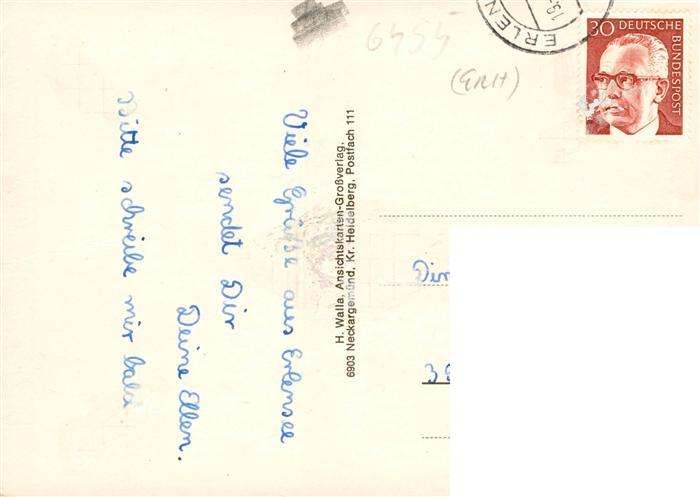 Viele Grüße aus Erlensee
sendet Dir
Deine Ellen.
Bitte schreibe mir bald
H. Walla, Ansichtskarten-Großverlag,
6903 Neckargemünd, Kr. Heidelberg, Postfach 111
6454
(ERH)
ERLEN
13.
30 DEUTSCHE
BUNDESPOST